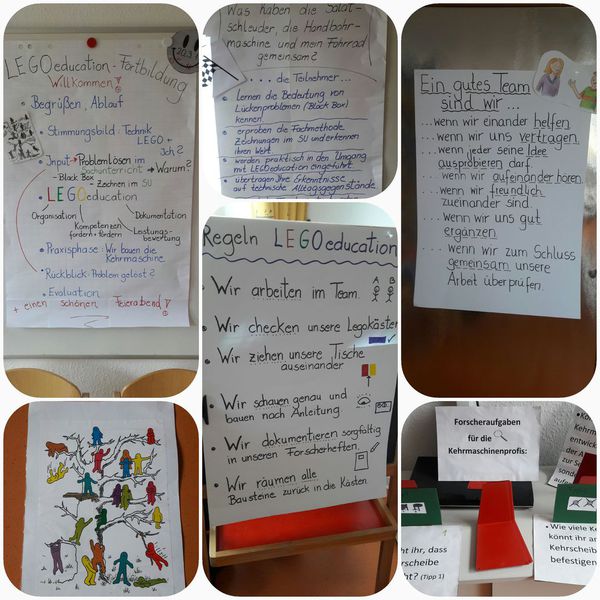 LEGOeducation-Fortbildung
Willkommen!
20.3
• Begrüßen, Ablauf
• Stimmungsbild: Technik
LEGO +
Ich?
• Input → Problemlösen im
Sachunterricht → Warum?
- Black Box
- Zeichnen im SU
• LEGOeducation
Organisation
Dokumentation
Kompetenzen
fordern + fördern
Leistungs-
bewertung
• Praxisphase: Wir bauen die
Kehrmaschine
• Rückblick: Problem gelöst?
• Evaluation
+ einen schönen Feierabend!
Was haben die Salat-
schleuder, die Handbohr-
maschine und mein Fahrrad
gemeinsam?
.... die Teilnehmer...
• lernen die Bedeutung von
Lückenproblemen (Black Box)
kennen
• erproben die Fachmethode
Zeichnungen im SU und erkennen
ihren Wert
• werden praktisch in den Umgang
mit LEGOeducation eingeführt
• übertragen ihre Erkenntnisse
auf technische Alltagsgegenstände
Ein gutes Team
sind wir ...
...wenn wir einander helfen.
...wenn wir uns vertragen.
... wenn jeder seine Idee
ausprobieren darf.
... wenn wir aufeinander hören.
... wenn wir freundlich
zueinander sind.
... wenn wir uns gut
ergänzen.
... wenn wir zum Schluss
gemeinsam unsere
Arbeit überprüfen.
Regeln LEGOeducation
A B
• Wir arbeiten im Team.
• Wir checken unsere Legokästen
• Wir ziehen unsere Tische
auseinander
• Wir schauen genau und
bauen nach Anleitung.
• Wir dokumentieren sorgfältig
in unseren Forscherheften.
• Wir räumen alle
Bausteine zurück in die Kästen.
Forscheraufgaben
für die
Kehrmaschinenprofis:
• Wie viele K
könnt ihr an
Kehrscheibe
befestigen
ht ihr, dass
rscheibe
ht? (Tipp 1)